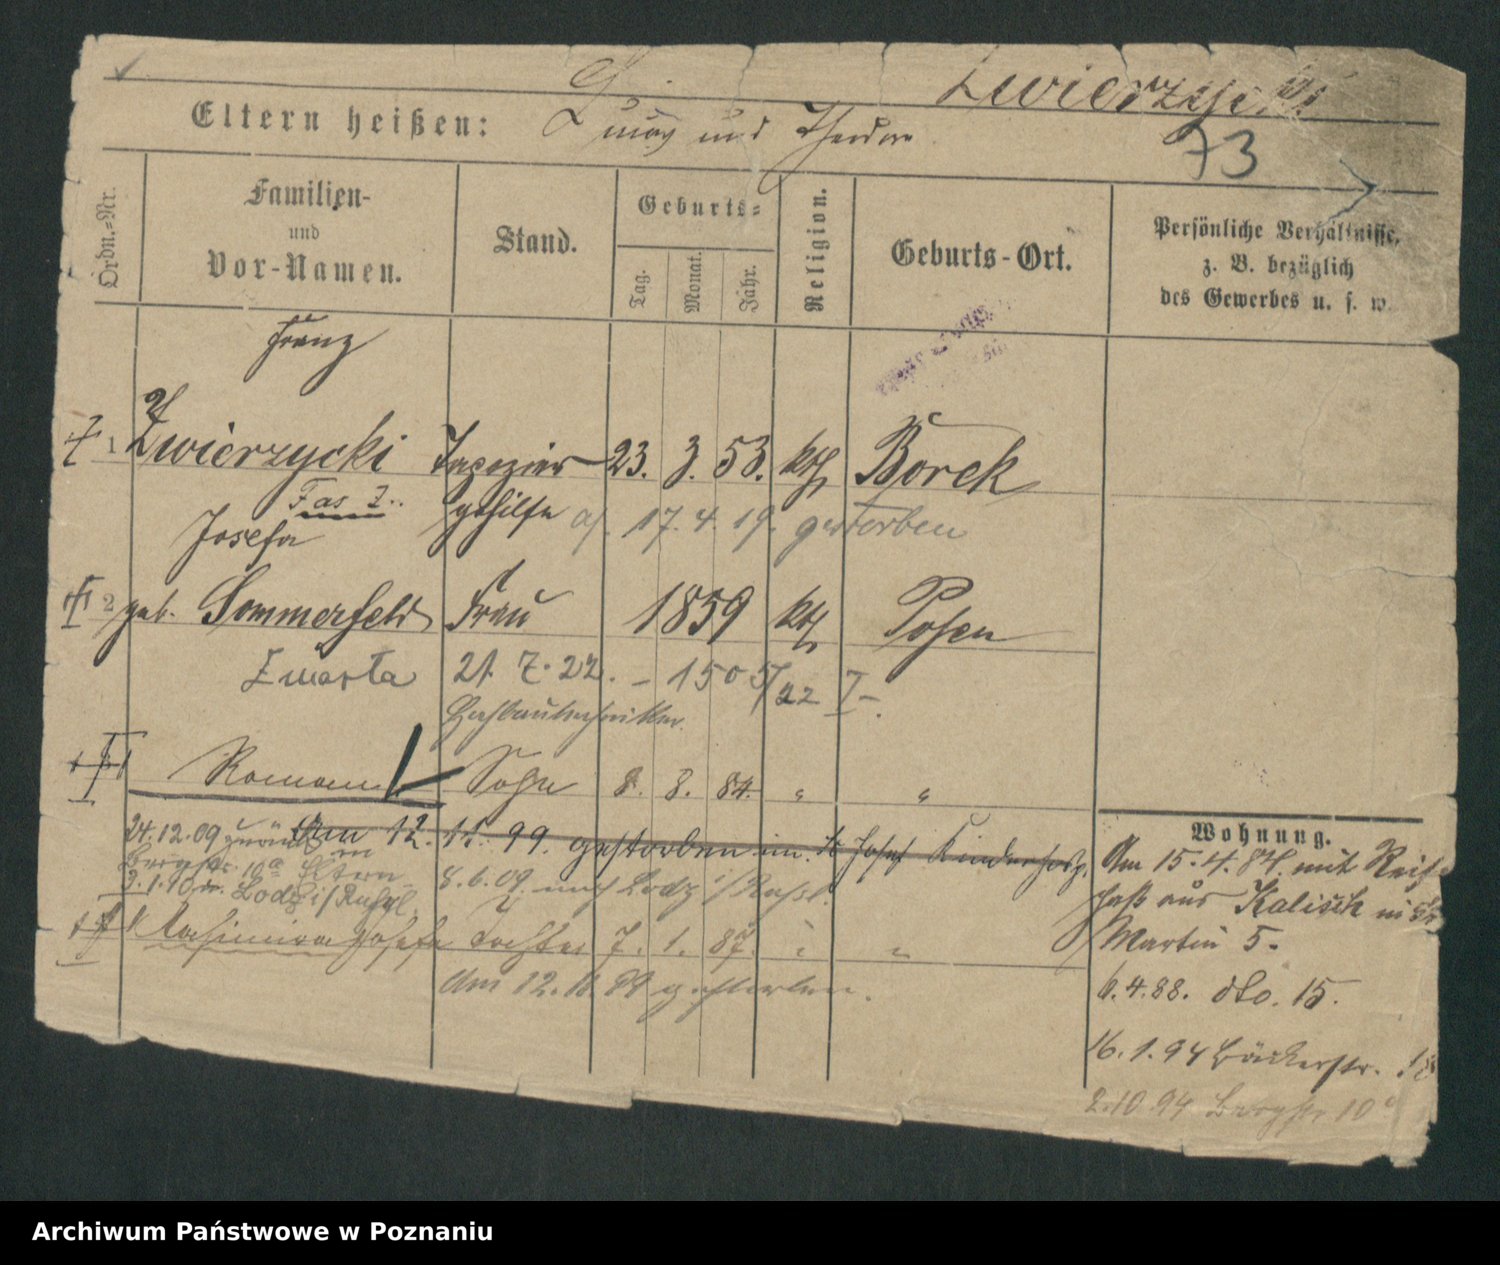 Zwierzycki
Eltern heißen: und Theodora
73
Ordn.-Nr.
Familien-
und
Vor-Namen.
Stand.
Geburts-
Tag.
Monat.
Jahr.
Religion.
Geburts-Ort.
Persönliche Verhältnisse,
z. B. bezüglich
des Gewerbes u. s. w.
Franz
1 Zwierzycki Tapezier 23. 3. 53. kth Borek
gehilfe 17. 4. 19. gestorben
Josefa
2 geb. Sommerfeld Frau 1859 kth Posen
21. 7. 22. - 1505/22 I-.
Hochbautechniker
Roman Sohn 8. 8. 84. " "
Am 12. 11. 99. gestorben im St Josef Kinderhosp.
24.12.09 zurück
Bergstr. 10a Eltern
3.1.10 Lodz i/Rußl.
8.6.09. nach Lodz i/Russl.
Kasimira Josefa Tochter 7. 1. 87. " "
Am 12. 11. 99 gestorben.
Wohnung.
Am 15.4.84. mit Reise
paß aus Kalisch in St
Martin 5.
6.4.88. dto. 15.
16.1.94 Bäckerstr. 18
2.10.94 Bergstr 10a